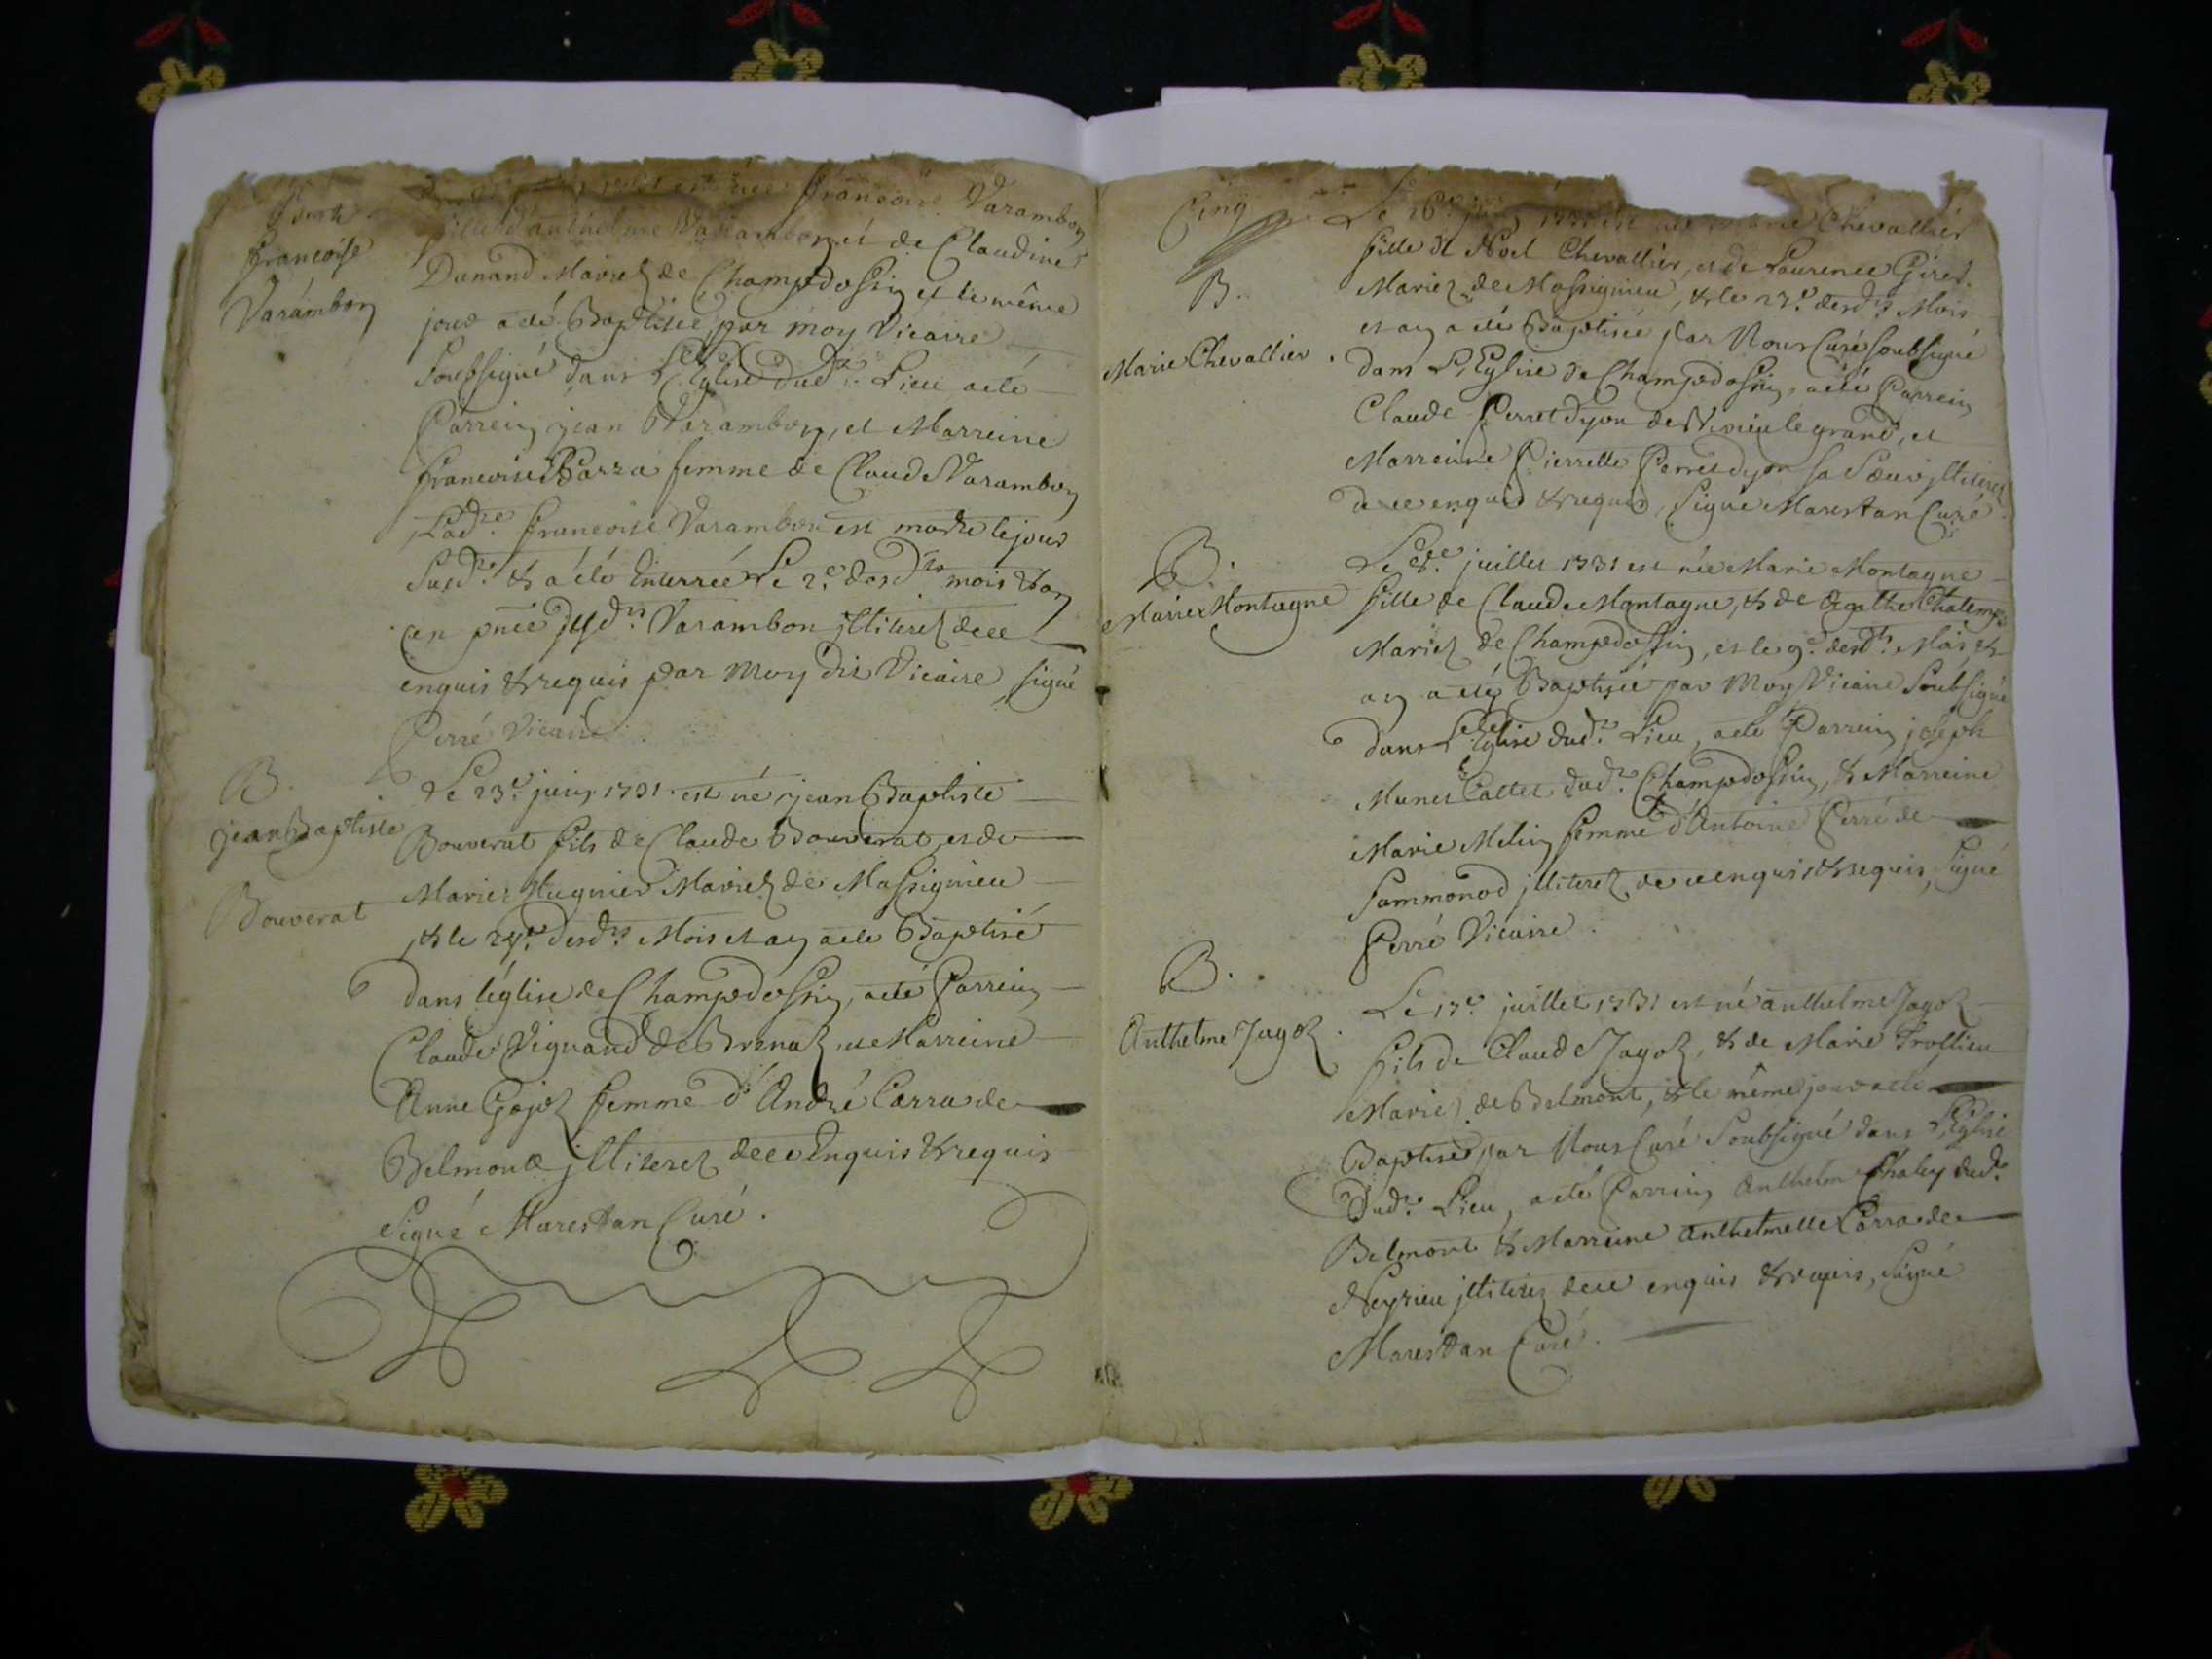 francoise
Varambon
est née francoise Varambon
fille d'anthelme Varambon, et de Claudine
Dunand Mariez de Champdossin et le même
jour a été Baptisée par moy Vicaire
Soussigné dans L'Eglise dud.t Lieu a été
Parrein jean Varambon, et Marreine
francoise Carra femme de Claude Varambon
Lad.te francoise Varambon est morte le jour
Susd.t & a été Enterrée Le 2.e desd.ts mois & an
en pnce Varambon jlliterez de ce
enquis & requis par Moy dit Vicaire, signé
Perré Vicaire
B.
jean Baptiste
Bouverat
Le 23.e juin 1731 est né jean Baptiste
Bouverat fils de Claude Bouverat, et de
Marie Mugnier Mariez de Massignieu
& le 24.e desd.ts Mois et an a été Baptisé
dans l'église de Champdossin, a été Parrein
Claude Vignand de Brenaz, et Marreine
Anne Gojoz femme d'André Carra de
Belmont jlliterez de ce Enquis & requis
Signé Marestan Curé.
Cinq
B.
Marie Chevallier.
Le 26.e juin 1731 est née Marie Chevallier
fille de Noel Chevallier, et de Laurence Giret
Mariez de Massignieu, & le 27.e desd.ts Mois
et an a été Baptisée par Nous Curé soubsigné
dans L'Eglise de Champdossin, a été Parrein
Claude Perretdyon de Virieu le grand, et
Marreine Pierrette Perretdyon sa Sœur jlliterez
de ce enquis & requis, Signé Marestan Curé.
B.
Marie Montagne
Le 8.e juillet 1731 est née Marie Montagne
fille de Claude Montagne, & de Agathe
Mariez de Champdossin, et le 9.e desd.ts Mois &
an a été Baptisée par Moy Vicaire Soubsigné
dans L'Eglise dud.t Lieu, a été Parrein joseph
Munet Callet dud.t Champdossin, & Marreine
Marie Melin femme d'Antoine Perré de
Sammonod jlliterez de ce enquis & requis, Signé
Perré Vicaire.
B.
Anthelme Jagoz.
Le 17.e juillet 1731 est né anthelme Jagoz
fils de Claude Jagoz, & de Marie Trollieu
Mariez de Belmont, & le même jour a été
Baptisé par Nous Curé Soubsigné dans L'Eglise
Dud.t Lieu, a été Parrein Anthelme Chaley dud.t
Belmont & Marreine Anthelmette Carra de
Neyrieu jlliterez de ce enquis & requis, Signé
Marestan Curé.